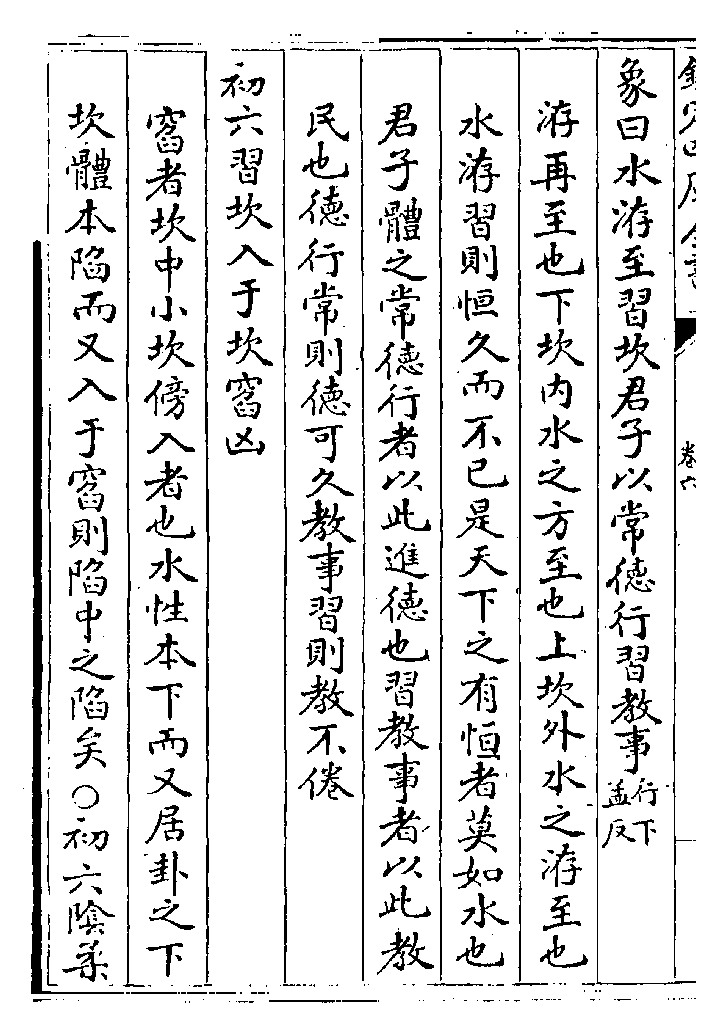 象曰水洊至習坎君子以常德行習教事行下孟反
洊再至也下坎内水之方至也上坎外水之洊至也
水洊習則恒久而不已是天下之有恒者莫如水也
君子體之常德行者以此進德也習教事者以此教
民也德行常則德可久教事習則教不倦
初六習坎入于坎窞凶
窞者坎中小坎傍入者也水性本下而又居卦之下
坎體本陷而又入于窞則陷中之陷矣○初六陰柔